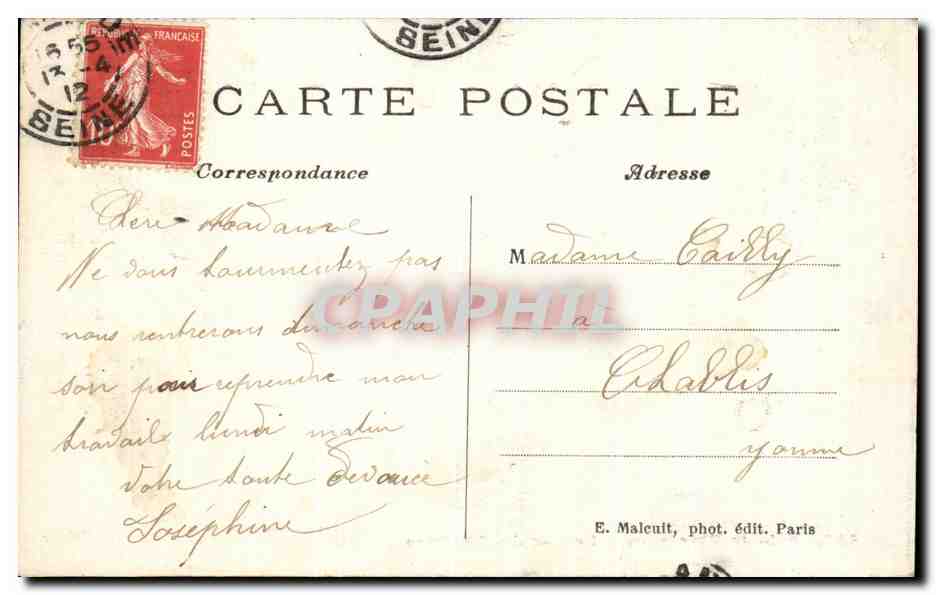 SEINE
REPUBLIQUE FRANÇAISE
13 -4
12
SEINE
POSTES
CARTE POSTALE
Correspondance
Adresse
Chère Madame
Ne vous tourmentez pas
nous rentrerons dimanche
soir pour reprendre mon
travail lundi matin
Votre toute devouée
Joséphine
Madame Cailly
a
Chablis
yonne
E. Malcuit, phot. édit. Paris
CPAPHIL